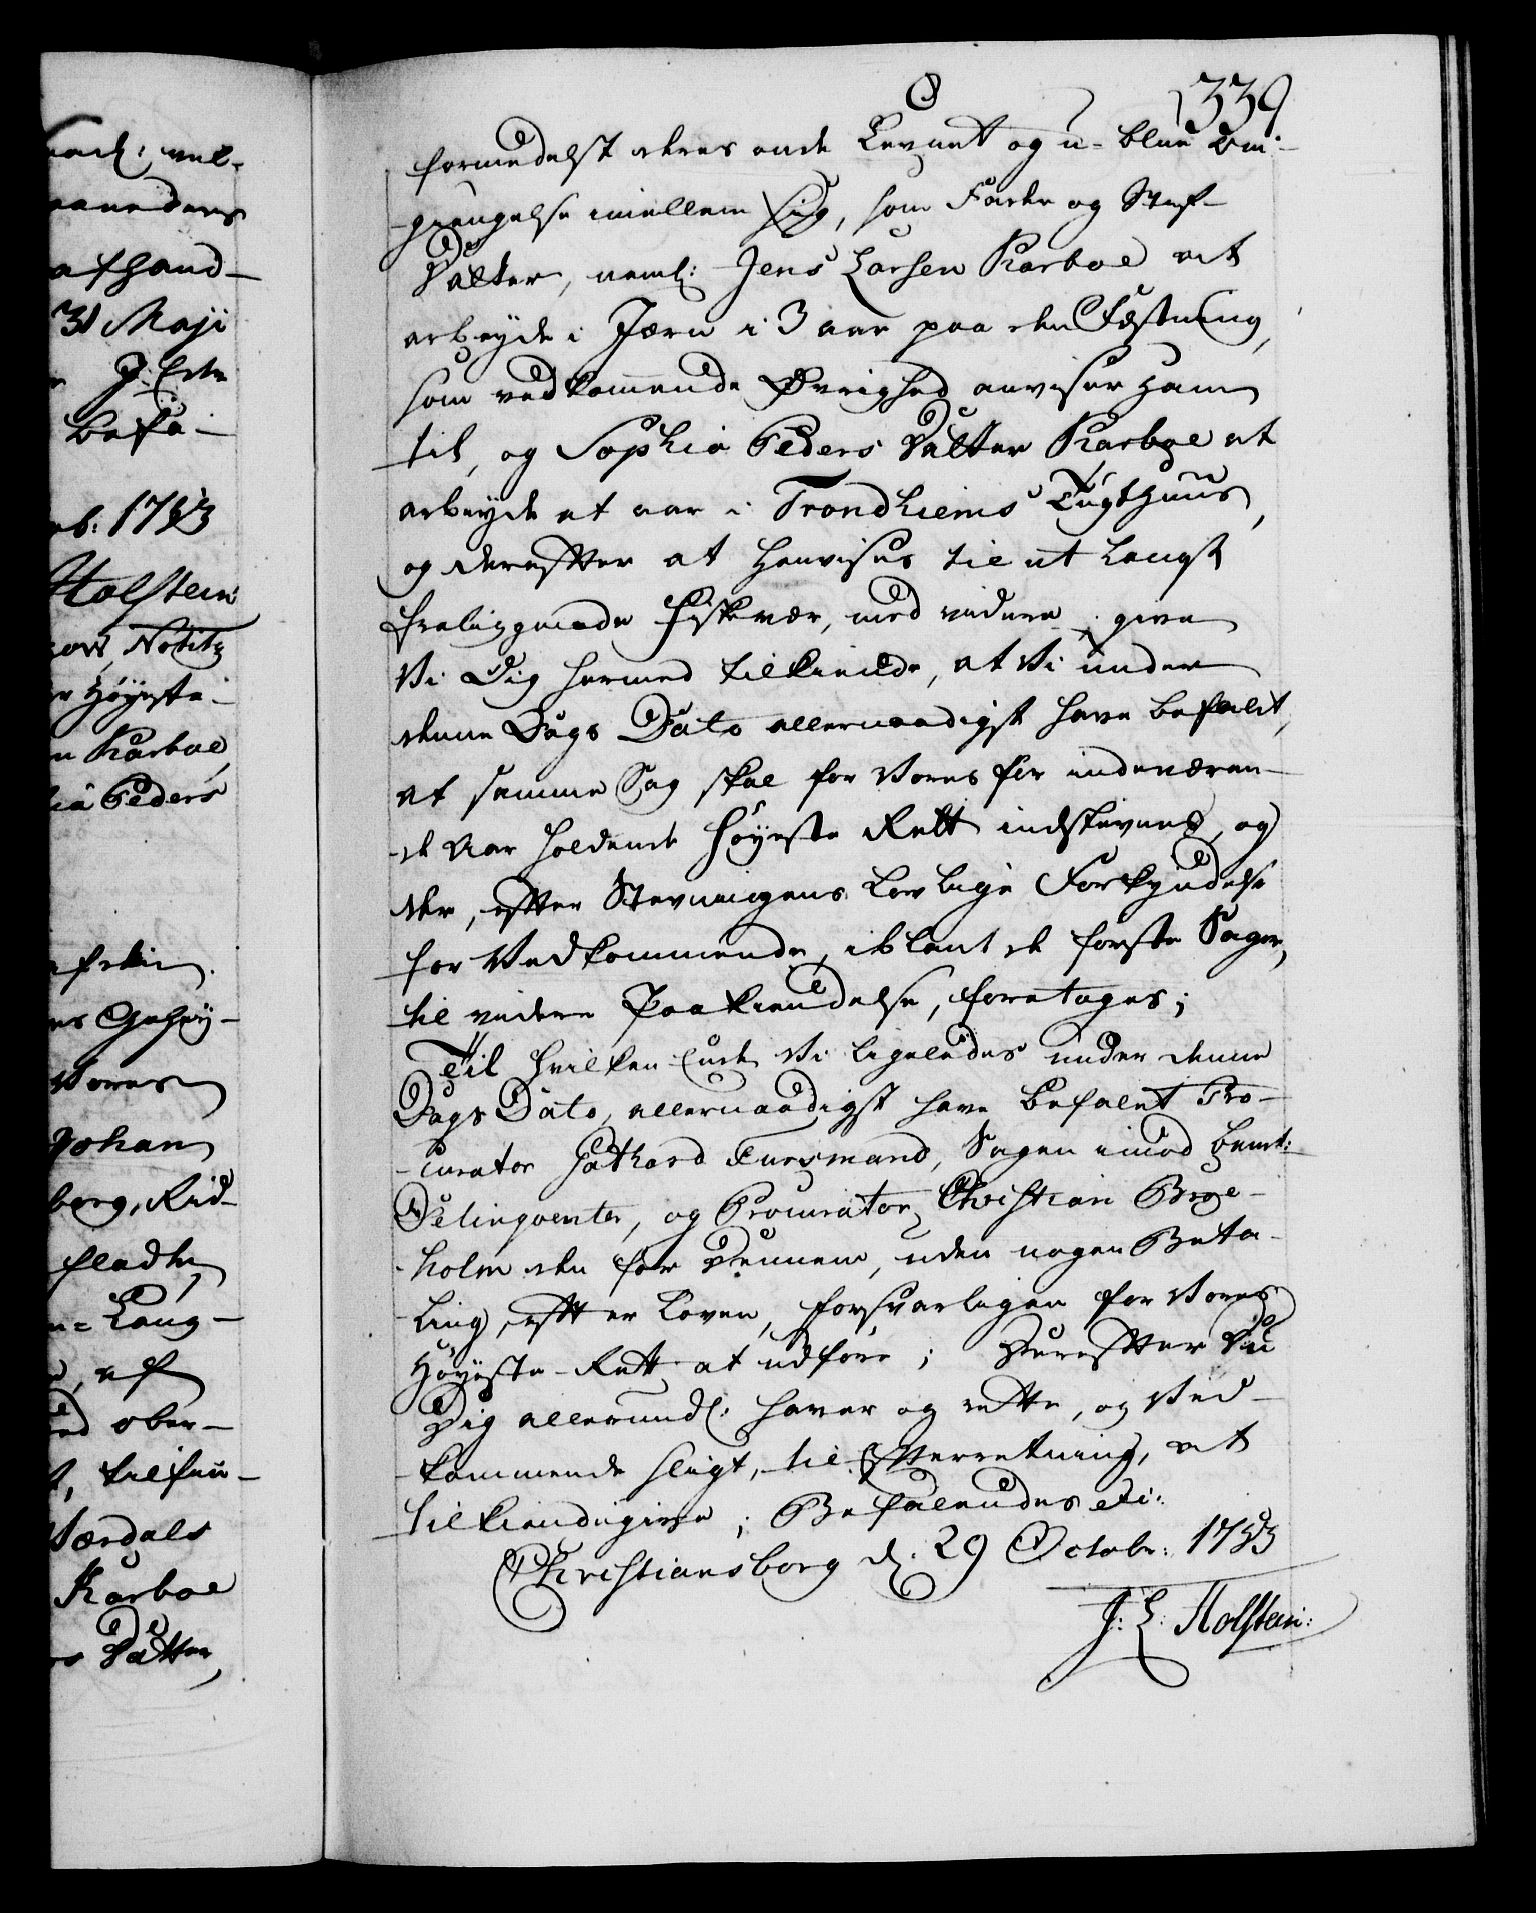 339
formedelst deres onde Levnet og u-blue Om-
gængelse imellem sig, som Fader og Stif-
Datter, neml: Jens Larsen Karboe at
arbeyde i Jærn i 3 aar paa den Fæstning,
som vedkommende Øvrighed anviser ham
til, og Sophia Peders Datter Karboe at
arbeyde et aar i Trondhiems Tugthuus,
og derefter at henvises til et langt
fraliggende Fiskevær, med videre; give
Vi Dig hermed tilkiende, at Vi under
denne Dags Dato allernaadigst have befalet,
at samme Sag skal for Vores for indeværen-
de Aar holdende Høyeste Rett indstevnes, og
der, efter Stevningens lovlige Forkyndelse
for Vedkommende, iblant de første Sager,
til videre Paakiendelse, foretages;
Til hvilken Ende Vi ligeledes under denne
Dags Dato, allernaadigst have befalet Pro-
curator Hathard Fursmand, Sagen imod bemt:
Delinqventer, og Procurator Christian Broe-
holm den for Dennem, uden nogen Beta-
ling, efter Loven, forsvarligen for Vores
Høyeste-Rett at udføre; Derefter Du
Dig allerundl: haver og rette, og Ved-
kommende sligt, til Efterretning, at
tilkiendegive; Befalendes etc:
Christiansborg d. 29 Octobr: 1753
J: L: Holstein:
31 Maji
befa-
1753
Holstein
Notitz
Høyeste-
Karboe,
Peders
Vores
Johan
borg, Rid-
Lang-
, af
ober-
, tilfun-
Værdals
Karboe
Datter,